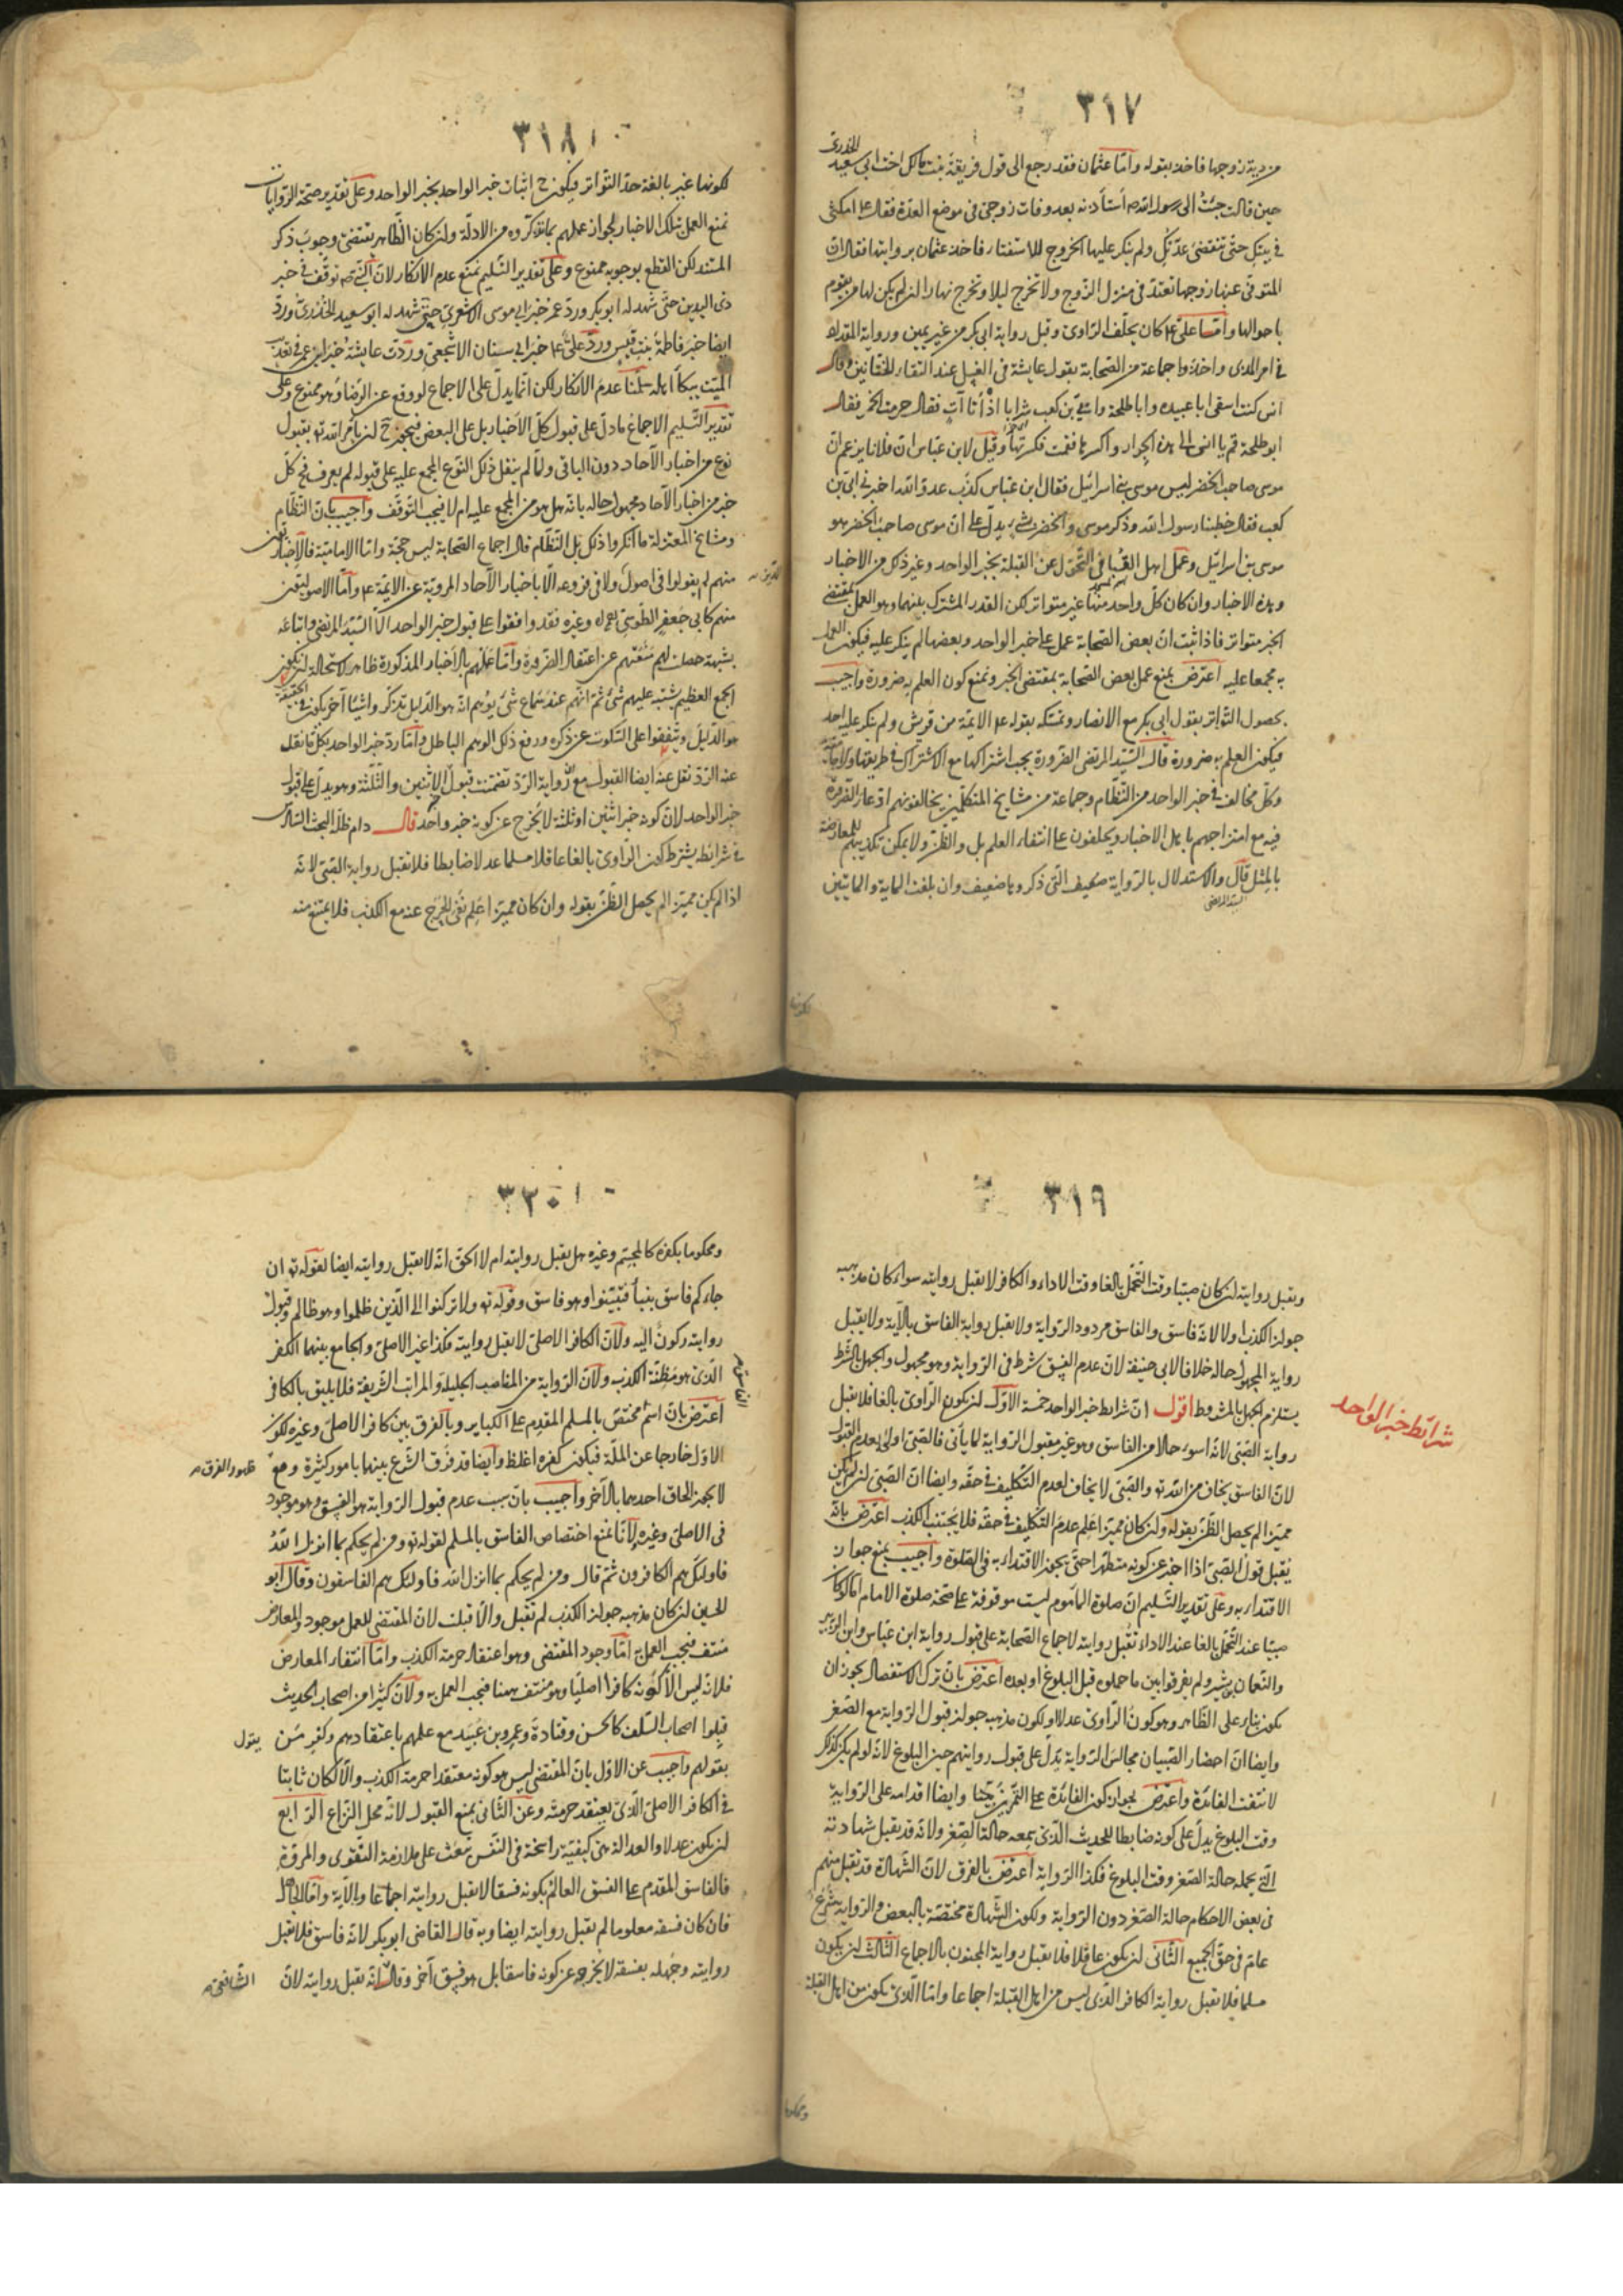 ٣١٧
من دية زوجها فاخذ بقوله وامّا عثمان فقد رجع الى قول فريعة بنت مالك اخت ابى سعيد الخدرى
حين قالت جئت الى رسول الله ص أستأذنه بعد وفات زوجى فى موضع العدّة فقال ع امكثى
فى بيتك حتّى تنقضى عدّتك ولم ينكر عليها الخروج للاستفتاء فاخذ عثمان بروايتها فقال ان
المتوفى عنها زوجها تعتدّ فى منزل الزّوج ولا تخرج ليلا وتخرج نهارا ان لم يكن لها من يقوم
باحوالها وامّا علىّ ع كان يحلّف الرّاوى وقبل رواية ابى بكر من غير يمين ورواية المقداد
فى امر المذى واخذوا جماعة من الصّحابة بقول عايشة فى الغسل عند التقاء الختانين وقال
انس كنت اسقى ابا عبيده وابا طلحة وابىّ بن كعب شرابا اذ أتانا آتٍ فقال حرمت الخمر فقال
ابو طلحة قم يا انس الى هذه الجرار واكسرها فقمت فكسرتها وقيل لابن عباس ان فلانا يزعم ان
موسى صاحب الخضر ليس موسى بنى اسرائيل فقال ابن عبّاس كذب عدوّ الله اخبرنى ابىّ بن
كعب فقال خطبنا رسول الله وذكر موسى والخضر بشىء يدلّ على انّ موسى صاحب الخضر هو
موسى بنى اسرائيل وعمل اهل القبا فى التّحوّل عن القبلة بخبر الواحد وغير ذلك من الاخبار
وهذه الاخبار وان كان كلّ واحد منها غير متواتر لكن القدر المشترك بينهما وهو العمل بمقتضى
الخبر متواتر فاذا ثبت انّ بعض الصّحابة عمل على خبر الواحد وبعضها لم ينكر عليه فيكون العمل
به مجمعا عليه اعترض بمنع عمل بعض الصّحابة بمقتضى الخبر ونمنع كون العلم به ضرورة واجيب
بحصول التّواتر بقول ابى بكر مع الانصار وتمسّكه بقوله ع الايمّة من قريش ولم ينكر عليه احد
فيكون العلم به ضرورة قال السّيّد المرتضى الضّرورة يجب اشتراكها مع الاشتراك فى طريقها
وكلّ مخالف فى خبر الواحد من النّظام وجماعة من مشايخ المتكلّمين يخالفونهم ادّعاء الضّرورة
فيه مع امتزاجهم باهل الاخبار ويحلفون على انتفاء العلم بل والظّن ولا يمكن تكذيبهم للمعارضة
بالمثل قال والاستدلال بالرّواية ضعيف الّتى ذكروها ضعيف وان بلغت الماية والمايتين
السيد المرتضى
لكونها
٣١٨
لكونها غير بالغة حدّ التّواتر فيكون ح اثبات خبر الواحد بخبر الواحد وعلى تقدير صحّة الرّوايات
نمنع العمل بتلك الاخبار لجواز عملهم بما تذكّروه من الادلّة وان كان الظّاهر يقتضى وجوب ذكر
المستند لكن القطع بوجوبه ممنوع وعلى تقدير التّسليم نمنع عدم الانكار لانّ النّبىّ ص توقّف فى خبر
ذى اليدين حتّى شهد له ابو بكر وردّ عمر خبر ابى موسى الاشعرى حتّى شهد له ابو سعيد الخدرى وردّ
ايضا خبر فاطمة بنت قيس وردّ علىّ ع خبر ابى سنان الاشجعى وردّت عايشة خبر ابن عمر فى تعذيب
الميّت ببكاء اهله سلّمنا عدم الانكار لكن انّما يدلّ على الاجماع لو وقع عن الرّضا وهو ممنوع وعلى
تقدير التّسليم الاجماع ما دلّ على قبول كلّ الأخبار بل على البعض فيجوز ح ان يأمر الله تع بقبول
نوع من اخبار الآحاد دون الباقى ولمّا لم ينقل ذلك النّوع المجمع عليه على قبوله لم يعرف فى كلّ
خبر من اخبار الآحاد مجهول حاله بانّه هل هو من المجمع عليه ام لا فيجب التّوقّف واجيب بانّ النّظام
ومشايخ المعتزلة ما انكروا ذلك بل النّظام قال اجماع الصّحابة ليس حجّة وامّا الاماميّة فالاخباريّين
منهم لم يعوّلوا فى اصول الدّين ولا فى فروعه الّا باخبار الآحاد المرويّة عن الائمّة ع وامّا الاصوليّون
منهم كابى جعفر الطّوسى ره وغيره فقد وافقوا على قبول خبر الواحد الّا السّيّد المرتضى واتباعه
بشبهة حصلت لهم منعتهم عن اعتقاد الضّرورة وامّا عملهم بالأخبار المذكورة ظاهر لاستحالة ان يكون
الجمع العظيم يشتبه عليهم شئ ثمّ انّهم عند سماع شئ يوهم انّه هو الدّليل تذكّروا شيئا آخر يكون فى الحقيقة
هو الدّليل ويتّفقوا على السّكوت عن ذكره ودفع ذلك الوهم الباطل وامّا ردّ خبر الواحد بكلّ ما نقل
عنه الردّ نقل عنه ايضا القبول مع انّ رواية الردّ تضمّنت قبول الاثنين والثّلثة وهو يدلّ على قبول
خبر الواحد لانّ كونه خبر اثنين او ثلثة لا يخرج عن كونه خبر واحد قال دام ظلّه البحث السّادس
فى شرائطه يشترط كون الرّاوى بالغا عاقلا مسلما عدلا ضابطا فلا تقبل رواية الصّبىّ لانّه
اذا لم يكن مميّزا لم يحصل الظّنّ بقوله وان كان مميّزا علم نفى الحرج عنه مع الكذب فلا يمتنع منه
٣١٩
وتقبل روايته ان كان صبيّا وقت التّحمّل بالغا وقت الاداء والكافر لا يقبل روايته سواء كان مذهبه
جواز الكذب او لا لانّه فاسق والفاسق مردود الرّواية ولا يقبل رواية الفاسق بالآية ولا يقبل
رواية المجهول حاله خلافا لابى حنيفة لانّ عدم الفسق شرط فى الرّواية وهو مجهول والجهل بالشّرط
يستلزم الجهل بالمشروط اقول انّ شرائط خبر الواحد خمسة الاوّل ان يكون الرّاوى بالغا فلا يقبل
شرائط خبر الواحد
رواية الصّبىّ لانّه اسوء حالا من الفاسق وهو غير مقبول الرّواية لما يأتى فالصّبى اولى بعدم القبول
لانّ الفاسق يخاف من الله تع والصّبى لا يخاف لعدم التّكليف فى حقّه وايضا انّ الصّبىّ ان لم يكن
مميّزا لم يحصل الظّنّ بقوله وان كان مميّزا علم عدم التّكليف فى حقّه فلا يجتنب الكذب اعترض بانّه
يقبل قول الصّبى اذا اخبر عن كونه متطهّرا حتّى يجوز الاقتداء به فى الصّلوة واجيب بمنع جواز
الاقتداء به وعلى تقدير التّسليم انّ صلوة المأموم ليست موقوفة على صحّة صلوة الامام امّا لو كان
صبيّا عند التّحمّل بالغا عند الاداء تقبل روايته لاجماع الصّحابة على قبول رواية ابن عبّاس وابن الزّبير
والنّعمان بن بشير ولم يفرقوا بين ما حملوه قبل البلوغ او بعده اعترض بانّ ترك الاستفصال يجوز ان
يكون بناء على الظّاهر وهو كون الرّاوى عدلا او لكون مذهبه جواز قبول الرّواية مع الصّغر
وايضا انّ احضار الصّبيان مجالس الرّواية يدلّ على قبول روايتهم حين البلوغ لانّه لو لم يكن كذلك
لانتفت الفائدة واعترض بجواز كون الفائدة على التّمرين تحبّبا وايضا اقدامه على الرّواية
وقت البلوغ يدلّ على كونه ضابطا للحديث الّذى سمعه حالة الصّغر ولانّه قد يقبل شهادته
الّتى يحمله حالة الصّغر وقت البلوغ فكذا الرّواية اعترض بالفرق لانّ الشّهادة قد تقبل منهم
فى بعض الاحكام حالة الصّغر دون الرّواية ولكون الشّهادة مختصّة بالبعض والرّواية شرع
عامّ فى حقّ الجميع الثّانى ان يكون عاقلا فلا تقبل رواية المجنون بالاجماع الثّالث ان يكون
مسلما فلا تقبل رواية الكافر الّذى ليس من اهل القبلة اجماعا وامّا الّذى يكون من اهل القبلة
ومحكوما
٣٢٠
ومحكوما بكفره كالمجسّم وغيره هل يقبل روايته ام لا الحقّ انّه لا يقبل روايته ايضا لقوله تع ان
جاءكم فاسق بنبأ فتبيّنوا وهو فاسق وقوله تع ولا تركنوا الى الّذين ظلموا وهو ظالم وقبول
روايته ركون اليه ولانّ الكافر الاصلىّ لا يقبل روايته فكذا غير الاصلىّ والجامع بينهما الكفر
الّذى هو مظنّة الكذب ولانّ الرّواية من المناصب الجليلة والمراتب الشّريفة فلا يليق بالكافر
اعترض بانّ اسم الفاسق مختصّ بالمسلم المقدم على الكبائر وبالفرق بين كافر الاصلىّ وغيره لكون
الاوّل خارجا عن الملّة فيكون كفره اغلظ وايضا قد فرّق الشّرع بينهما بامور كثيرة ومع ظهور الفرق
لا يجوز الحاق احدهما بالآخر واجيب بانّ سبب عدم قبول الرّواية هو الفسق وهو موجود
فى الاصلىّ وغيره لانّا نمنع اختصاص الفاسق بالمسلم لقوله تع ومن لم يحكم بما انزل الله
فاولئك هم الكافرون ثمّ قال ومن لم يحكم بما انزل الله فاولئك هم الفاسقون وقال ابو
الحسين ان كان مذهبه جواز الكذب لم تقبل والّا قبلت لانّ المقتضى للعمل موجود والمعارض
منتف فيجب العمل به امّا وجود المقتضى وهو اعتقاد حرمة الكذب وامّا انتفاء المعارض
فلانّه ليس الّا كونه كافرا اصليّا وهو منتف ههنا فيجب العمل به ولانّ كثيرا من اصحاب الحديث
قبلوا اصحاب السّلف كالحسن وقتادة وعمرو بن عبيد مع علمهم باعتقادهم وكفر من يقول
بقولهم واجيب عن الاوّل بانّ المقتضى ليس هو كونه معتقدا حرمة الكذب والّا لكان ثابتا
فى الكافر الاصلىّ الّذى يعتقد حرمته وعن الثّانى بمنع القبول لانّه محلّ النّزاع الرّابع
ان يكون عدلا والعدالة هى كيفيّة راسخة فى النّفس تبعث على ملازمة التّقوى والمروّة
فالفاسق المقدم على الفسق العالم بكونه فسقا لا يقبل روايته اجماعا والآية وامّا الجاهل
فان كان فسقه معلوما لم يقبل روايته ايضا وبه قال القاضى ابو بكر لانّه فاسق فلا يقبل
روايته وجهله بفسقه لا يخرجه عن كونه فاسقا بل هو فسق آخر وقال الشّافعى انّه تقبل روايته لانّ